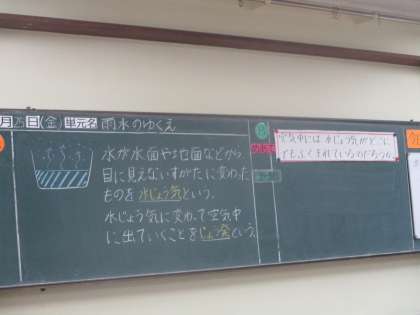 月25日(金)単元名 雨水のゆくえ
水が水面や地面などから
目に見えないすがたに変わった
ものを水じょう気という。
水じょう気に変わって空気中
に出ていくことをじょう発という。
空気中には水じょう気がどこに
でもふくまれているのだろうか。